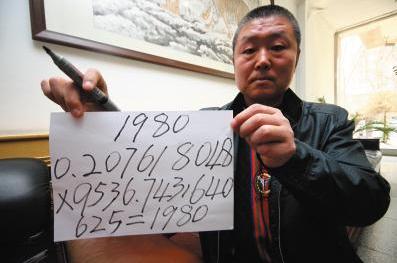 1980
0.207618048
×9536.743,640
625=1980